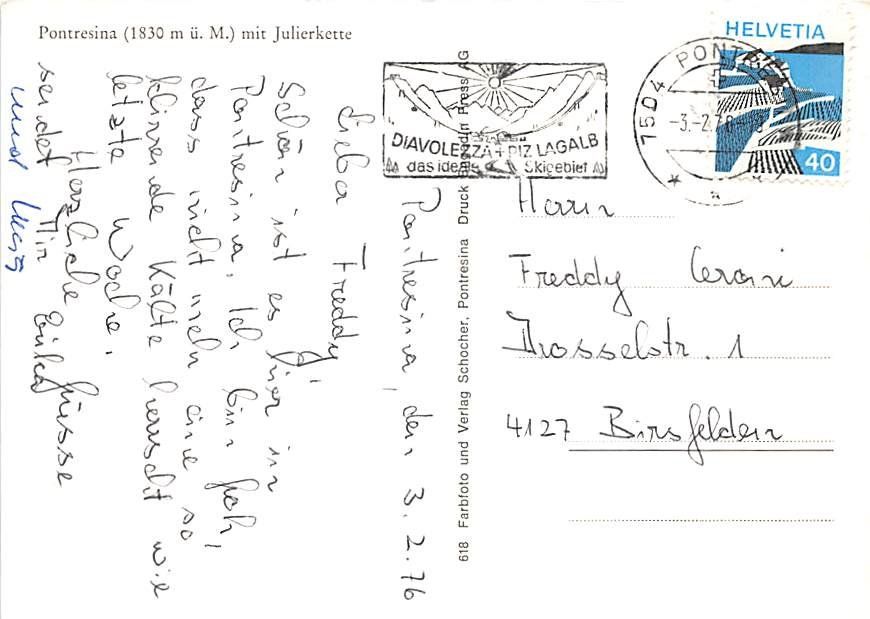 Pontresina (1830 m ü. M.) mit Julierkette
HELVETIA
40
7504 PONTRESINA
-3.-2.76
DIAVOLEZZA + PIZ LAGALB
das ideale Skigebiet
618 Farbfoto und Verlag Schocher, Pontresina Druck Engadin Press AG
Pontresina, den 3.2.76
Lieber Freddy,
Schön ist es hier in
Pontresina. Ich bin froh,
dass nicht mehr eine so
klirrende Kälte herrscht wie
letzte Woche.
Herzliche Grüsse
sendet Dir
und
Herrn
Freddy
Drosselstr. 1
4127 Birsfelden